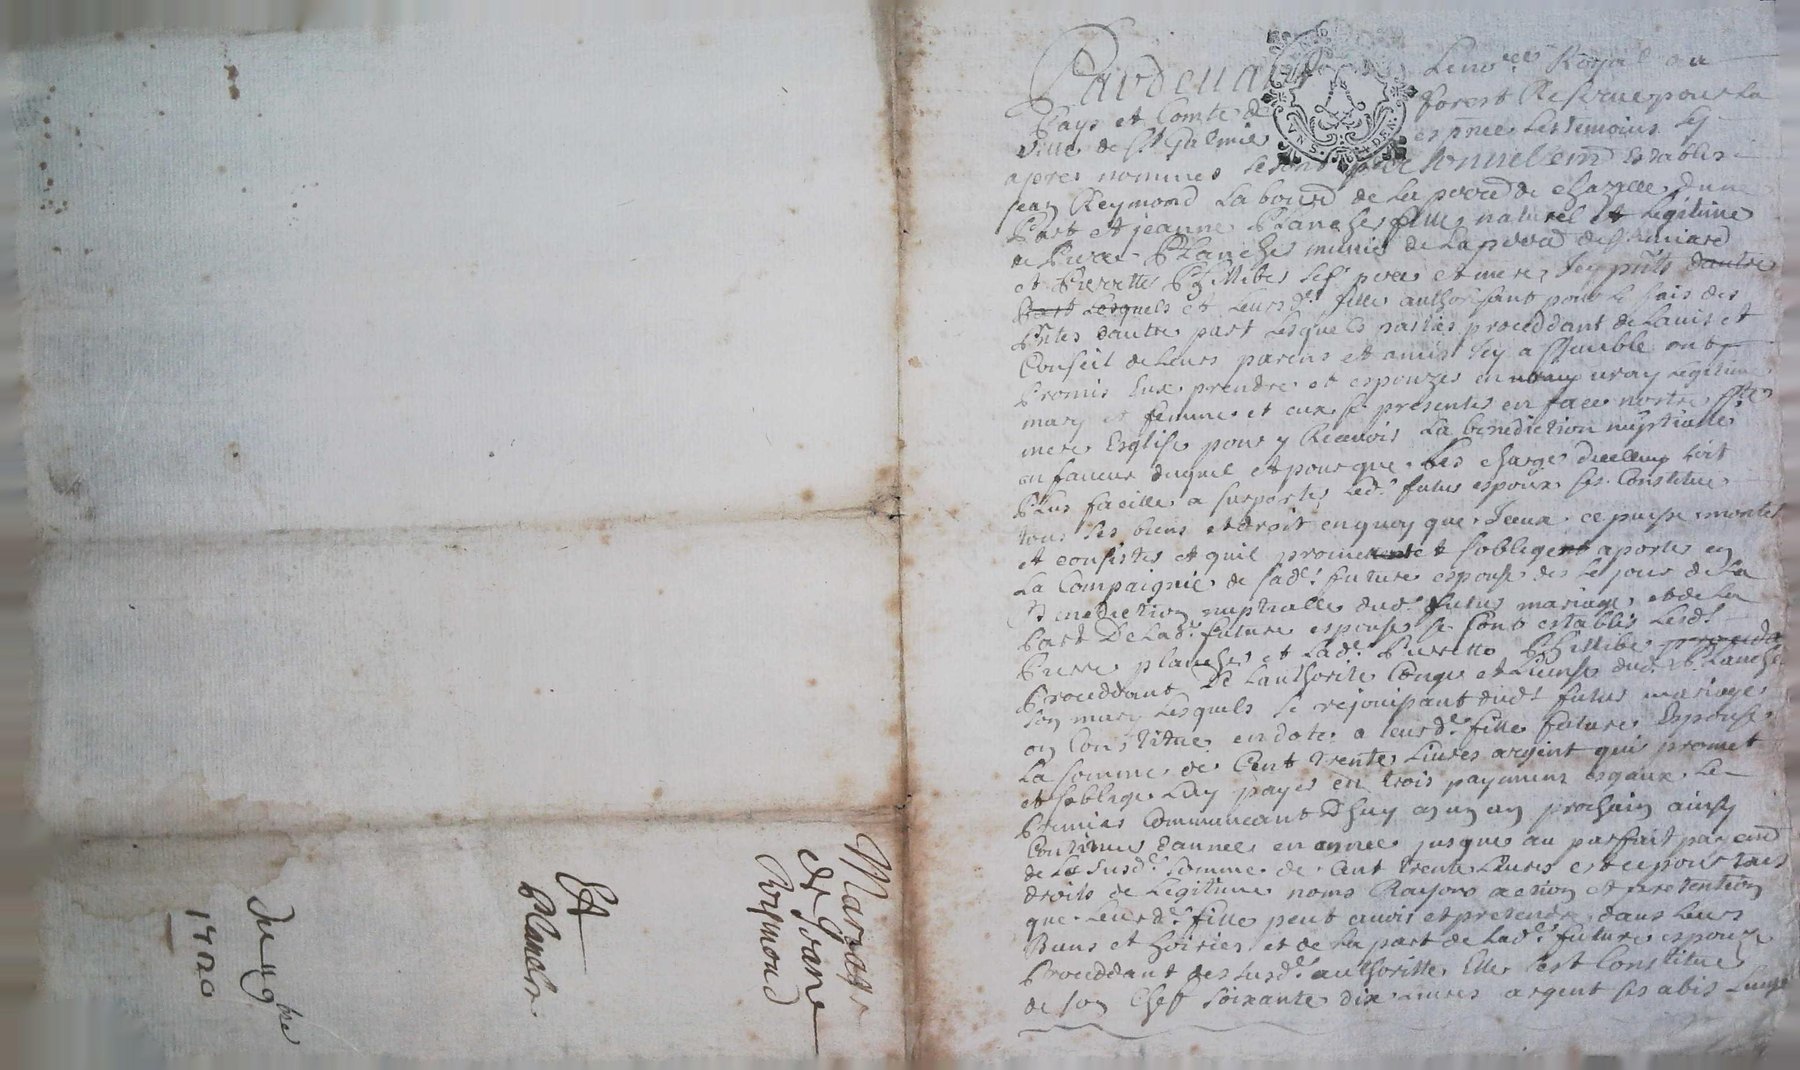 Pardevant Le no.re Royal au
Pays et Comte de forest Reservé pour La
ville de St Galmier es pñce Les temoins cy
apres nommes se sont personnellemt Establis
Jean Reymond Laboure de La de chazelle dune
Part et jeanne Planches fille naturel et Legitime
Planches munier de La
et Pierrette Phillibes ses pere et mere, Icy pñts dautre
Part Lesquels et Leursd. fille authorisant pour Le fais des
pñtes dautre part Lesquels parties proceddant de Lavis et
Conseil de Leurs parens et amis Icy assemble ont
Promis Eux prendre et espouzes en vray Legitime
mary et femme et eux se presentes en face nostre Ste
mere Esglise pour y Recevois La benediction nuptialle
en faveur duquel et pour que Les charge dicelluy soit
Plus facille a surportes Led. futus espoux ses Constitue
tous ses biens et droit en quoy que Iceux ce puisse montes
et consistes et quil promet et soblige aportes en
La Compaignie de sad. future espouse des Le jour de La
Benediction nuptialle dud. futus mariage et de La
Part De Lad. future espouse se sont establis Lesd.
Pierre planches et Lad. Pierrette Phillibes
Proceddant De Lauthorite Conge et License dud. Planche
son mary Lesquels se rejouissant dud. futus mariage
on Constitue en dote a leurd. fille future Espouse
La somme de Cent trente Livres argent qui promet
et soblige Luy payes en trois payemens esgaux Le
Premies Commencant Dhuy en un an prochain ainsy
Continues dannee en annee jusques au parfait payemt
de La susd. somme de Cent trente Livres et ce pour tais
droits de Legitime noms Rayons action et pretention
que Leurd. fille peut avois et pretendre dans Leurs
Biens et hoiries et de La part de Lad. future espouze
Proceddant de susd. authoritte Elle sest Constitue
de son Cheff soixante dix Livres argent ses abis Linge
Mariage
de Joanne
Reymond
Et
Planche
Du 9bre
1720